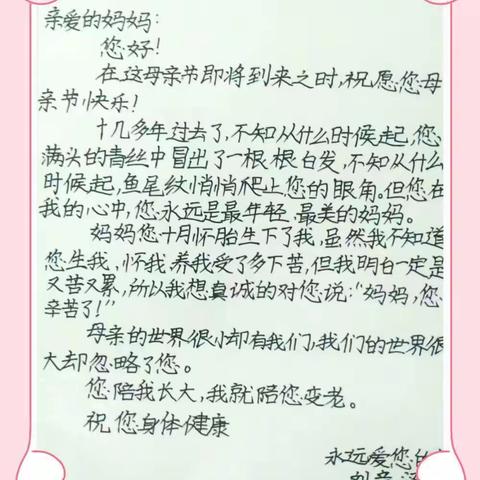 亲爱的妈妈：
您好！
在这母亲节即将到来之时，祝愿您母
亲节快乐！
十几多年过去了，不知从什么时候起，您
满头的青丝中冒出了一根根白发，不知从什么
时候起，鱼尾纹悄悄爬上您的眼角。但您在
我的心中，您永远是最年轻、最美的妈妈。
妈妈您十月怀胎生下了我，虽然我不知道
您生我，怀我，养我受了多下苦，但我明白一定是
又苦又累，所以我想真诚的对您说："妈妈，您
辛苦了！"
母亲的世界很小却有我们，我们的世界很
大却忽略了您。
您陪我长大，我就陪您变老。
祝您身体健康
永远爱您的